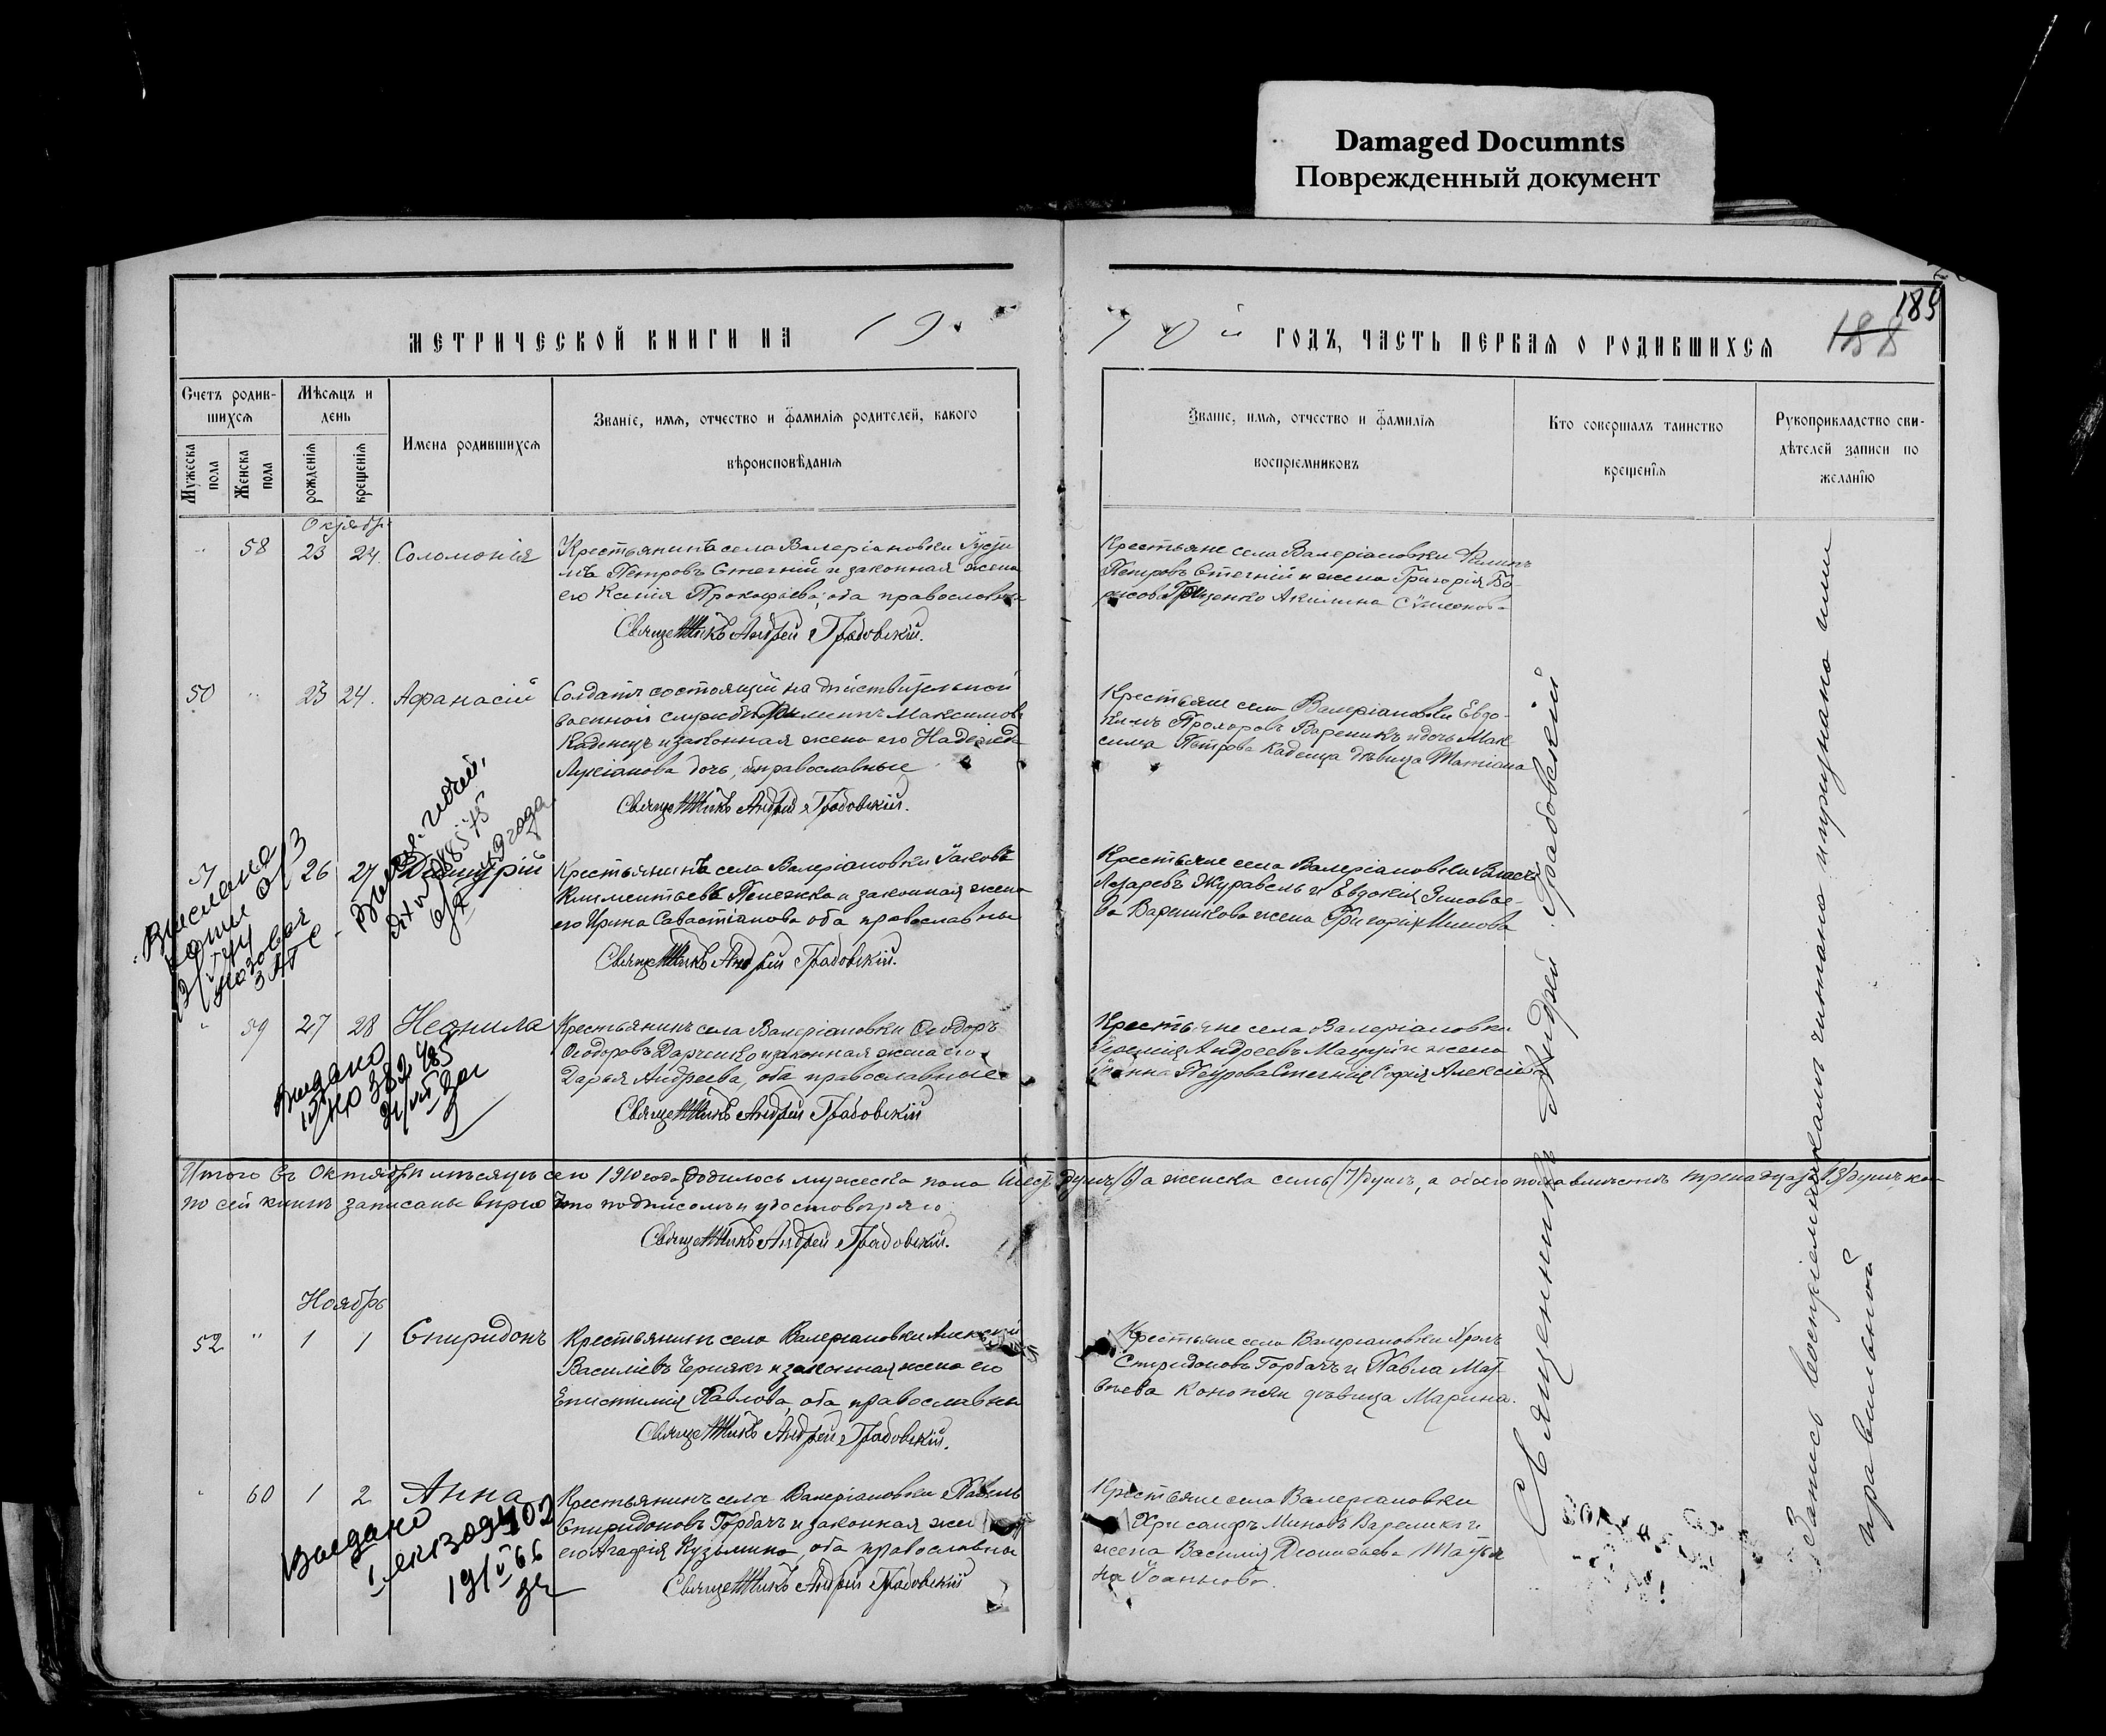 Damaged Documnts
Поврежденный документ
185
188
МЕТРИЧЕСКОЙ КНИГИ НА 19
10й ГОДЪ, ЧАСТЬ ПЕРВАЯ О РОДИВШИХСЯ
Счетъ родив-
шихся
Мужеска пола
Женска пола
Мѣсяцъ и
день
рожденія
крещенія
Имена родившихся
Званіе, имя, отчество и фамилія родителей, какого
вѣроисповѣданія
Званіе, имя, отчество и фамилія
воспріемниковъ
Кто совершалъ таинство
крещенія
Рукоприкладство сви-
дѣтелей записи по
желанію
Октябрь
" 58 23 24. Соломонія
Крестьянинъ села Валеріановки Іусти
нъ Петровъ Стегній и законная жена
его Ксенія Прокофьева; оба православны
Священникъ Андрей Грабовскій.
Крестьяне села Валеріановки Филипъ
Петровъ Стегній и жена Григорія Бо-
рисова Гриценко Акилина Симеонов-
50 " 23 24. Афанасій
Солдатъ состоящій на дѣйствительной
военной службѣ Филипъ Максимовъ
Каденецъ и законная жена его Надежда
Лукіанова дочь, православные
Священникъ Андрей Грабовскій.
Крестьяне села Валеріановки Евдо-
кимъ Прохоровъ Вареникъ и дочь Мак-
сима Петрова Каденца дѣвица Татіана
51 26 27 Димитрій
Крестьянинъ села Валеріановки Іаковъ
Климентьевъ и законная жена
его Ирина Савастіанова оба православны
Священникъ Андрей Грабовскій.
Крестьяне села Валеріановки Власъ
Лазаревъ Журавель и Евдокія Зиновье-
ва Вареникова жена Григорія Минова
" 59 27 28 Неонила
Крестьянинъ села Валеріановки Ѳеодоръ
Ѳеодоровъ и законная жена его
Дарья Андреева, оба православные
Священникъ Андрей Грабовскій
Выдано
Крестьяне села Валеріановки
Іеремія Андреевъ Мацуй и жена
Іоанна Петрова Стегнія Софія Алексіева
Итого въ Октябрѣ мѣсяцѣ сего 1910 года родилось мужеска пола шесть душъ (6) а женска семь (7) душъ, а обоего пола вмѣстѣ тринадцать (13) душъ, ко-
по сей книгѣ записаны вѣрно что подписомъ и удостовѣряю
Священникъ Андрей Грабовскій.
Ноябрь
52 " 1 1 Спиридонъ
Крестьянинъ села Валеріановки Алексій
Василіевъ Чернякъ и законная жена его
Епистимія Павлова, оба православны
Священникъ Андрей Грабовскій.
Крестьяне села Валеріановки
Спиридоновъ Горбачъ и Павла Мат-
вѣева Конопля дѣвица Марина.
" 60 1 2 Анна
Крестьянинъ села Валеріановки Павелъ
Спиридоновъ Горбачъ и законная жена
его Агафія Кузьмина, оба православны
Священникъ Андрей Грабовскій
Выдано
Крестьяне села Валеріановки
Хрисанфъ Миновъ Вареникъ и
жена Василія Діонисьева Татья
на Іоаннова.
Священникъ Андрей Грабовскій
Запись воспріемникамъ читана и признана ими
правильной